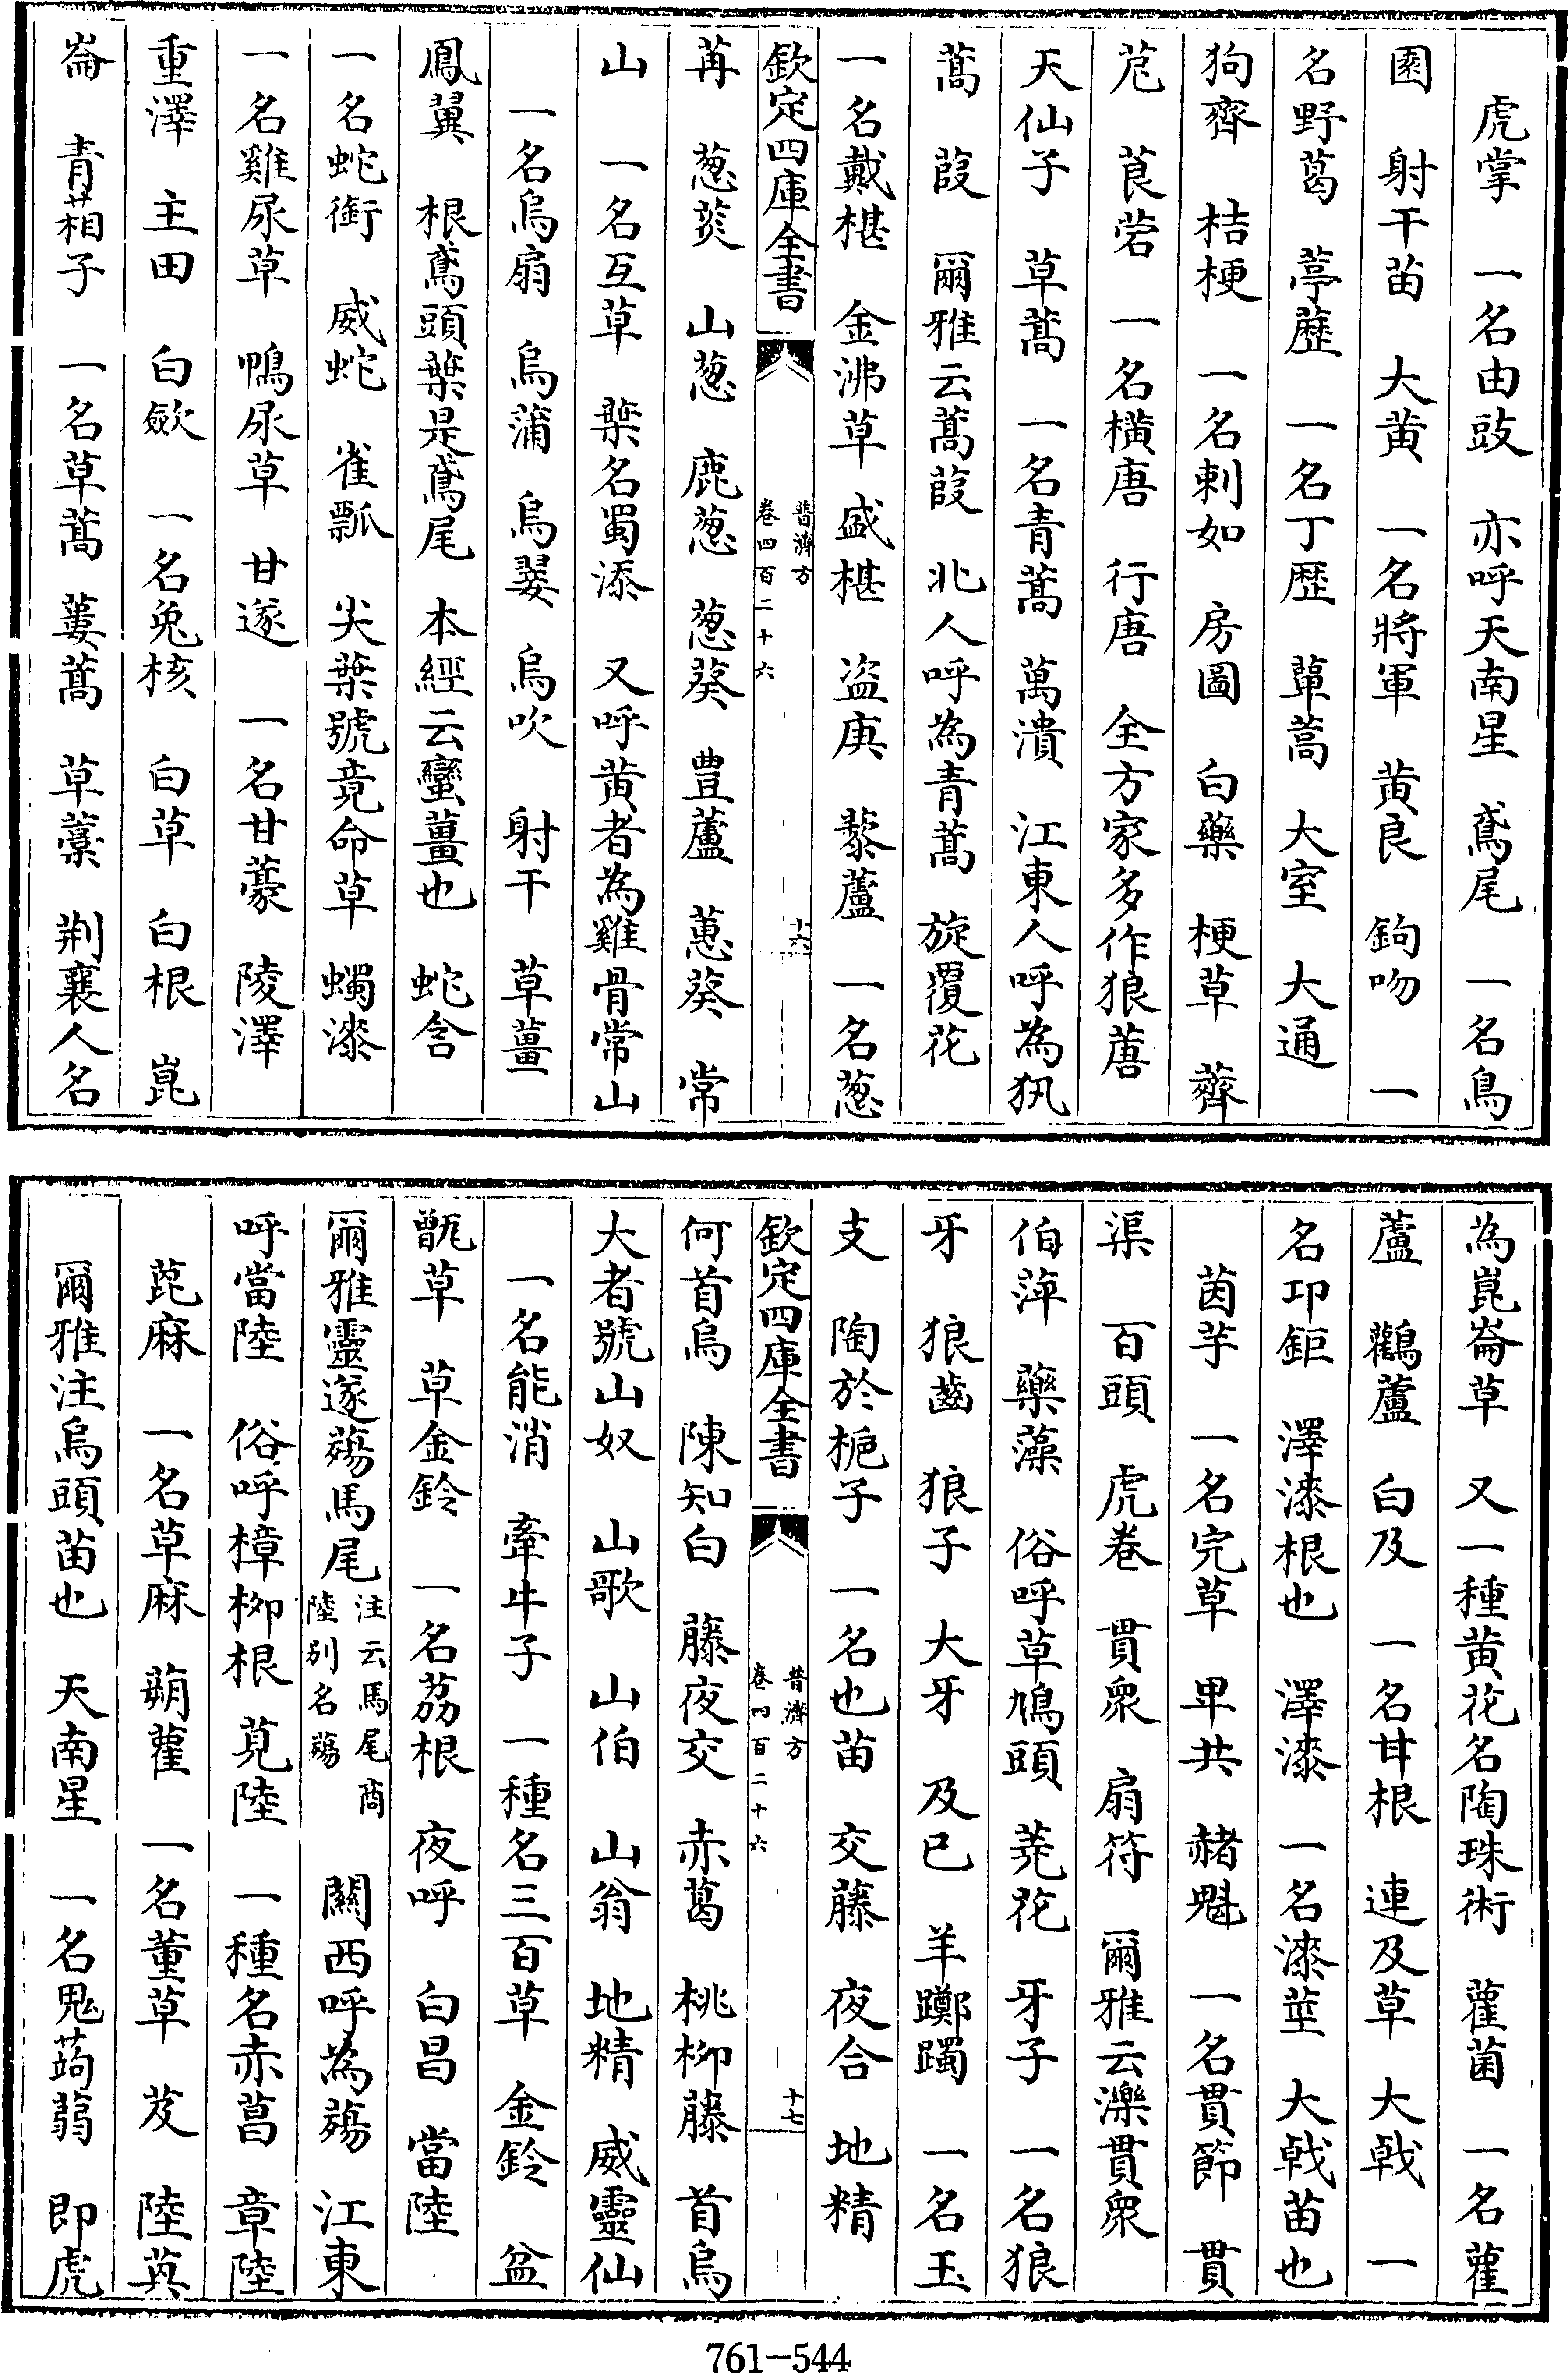 虎掌　一名由跂　亦呼天南星　鳶尾　一名烏
園　射干苗　大黄　一名將軍　黄良　鉤吻　一
名野葛　葶藶　一名丁歴　蕇蒿　大室　大通
狗薺　桔梗　一名刺如　房圖　白藥　梗草　薺
苨　莨菪　一名横唐　行唐　全方家多作狼蓎
天仙子　草蒿　一名青蒿　萬潰　江東人呼為犼
蒿　葭　爾雅云蒿葭　北人呼為青蒿　旋覆花
一名戴椹　金沸草　盛椹　盜庚　藜蘆　一名葱
欽定四庫全書
普濟方
卷四百二十六
十六
苒　葱菼　山葱　鹿葱　葱葵　豊蘆　蕙葵　常
山　一名互草　葉名蜀漆　又呼黄者為雞骨常山
一名烏扇　烏蒲　烏翣　烏吹　射干　草薑
鳳翼　根鳶頭葉是鳶尾　本經云蠻薑也　蛇含
一名蛇銜　威蛇　雀瓢　尖葉號竟命草　蠋漆
一名雞尿草　鴨尿草　甘遂　一名甘藁　陵澤
重澤　主田　白歛　一名兎核　白草　白根　崑
崙　青葙子　一名草蒿　萋蒿　草藁　荆襄人名
為崑崙草　又一種黄花名陶珠術　雚菌　一名雚
蘆　鸛蘆　白及　一名甘根　連及草　大戟　一
名卭鉅　澤漆根也　澤漆　一名漆莖　大戟苗也
茵芋　一名完草　卑共　赭魁　一名貫節　貫
渠　百頭　虎卷　貫衆　扇符　爾雅云濼貫衆
伯萍　藥藻　俗呼草鴆頭　蕘花　牙子　一名狼
牙　狼齒　狼子　大牙　及已　羊躑躅　一名玉
支　陶於梔子　一名也苗　交藤　夜合　地精
欽定四庫全書
普濟方
卷四百二十六
十七
何首烏　陳知白　藤夜交　赤葛　桃柳藤　首烏
大者號山奴　山歌　山伯　山翁　地精　威靈仙
一名能消　牽牛子　一種名三百草　金鈴　盆
甑草　草金鈴　一名茘根　夜呼　白昌　當陸
爾雅靈遂蕩馬尾　注云馬尾商陸别名蕩　闗西呼為蕩　江東
呼當陸　俗呼樟柳根　莧陸　一種名赤菖　章陸
萞麻　一名草麻　蒴藋　一名菫草　芨　陸英
爾雅注烏頭苗也　天南星　一名鬼蒟蒻　即虎
761-544